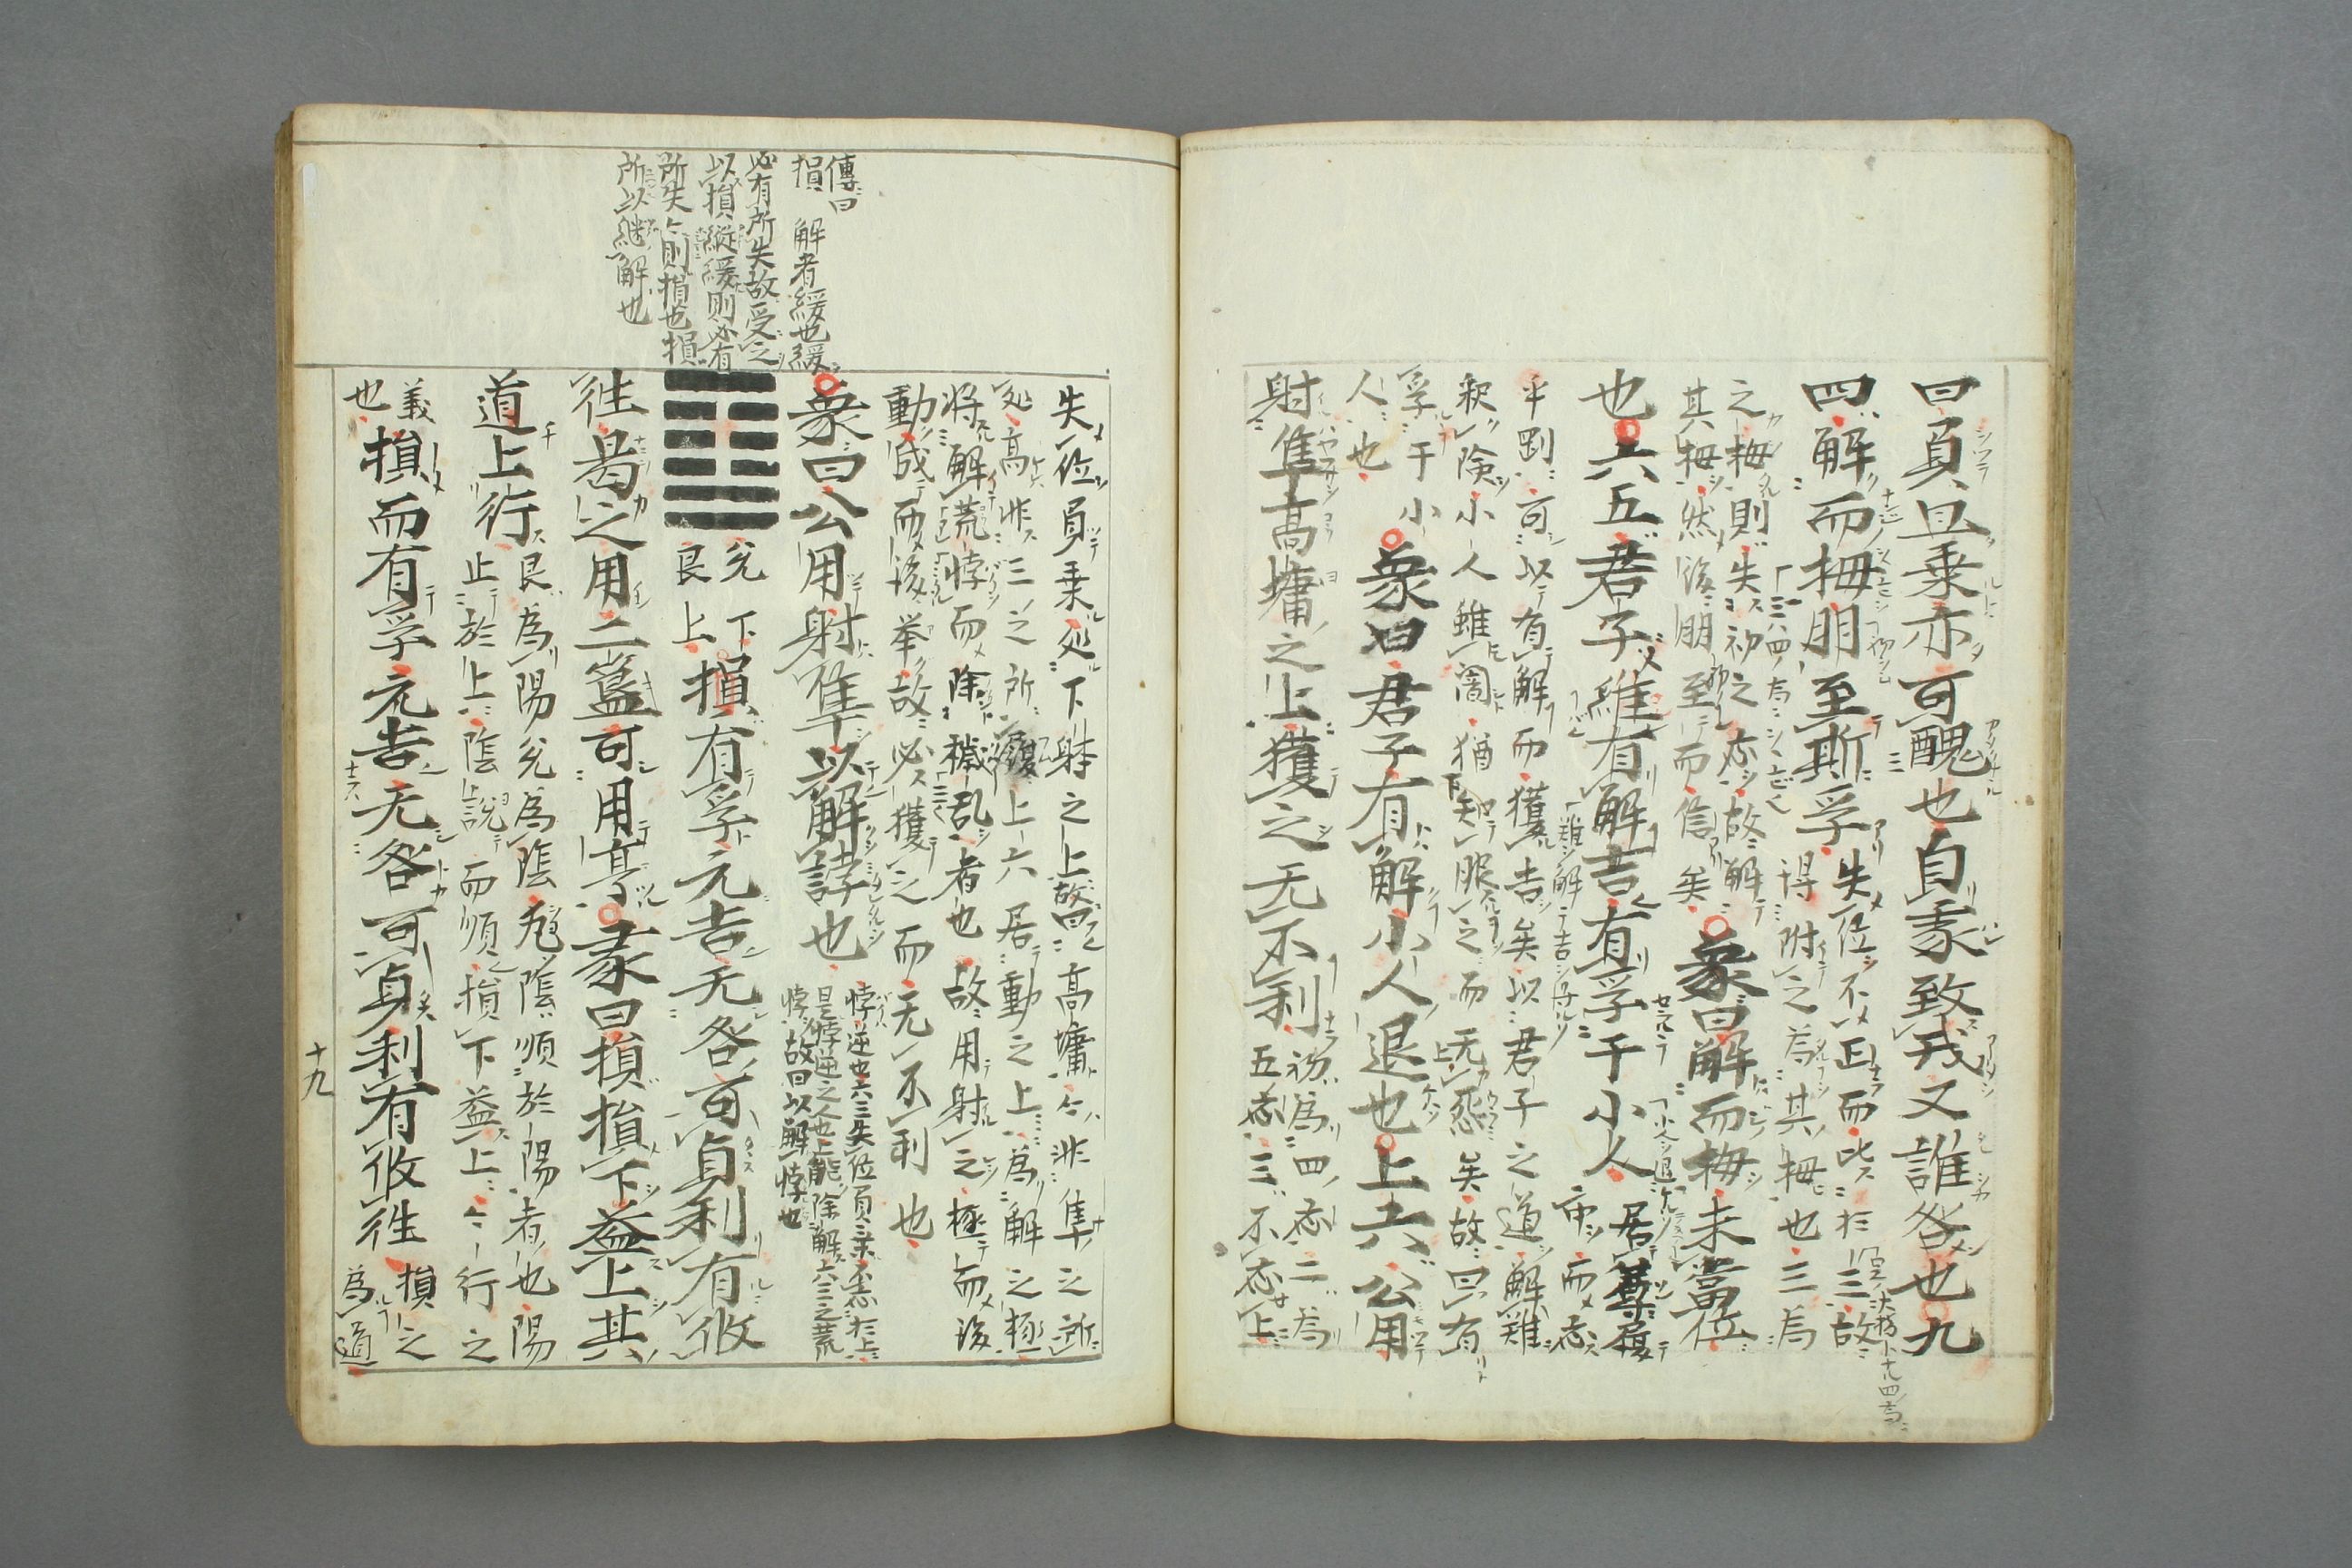 曰負且乗亦可醜也自我致戎又誰咎也九
四解而拇朋至斯孚
失位不正而比於三故
得附之為其拇也三為
之拇則失初之應故解
其拇然後朋至而信矣
象曰解而拇未當位
也六五君子維有解吉有孚于小人
居尊履
中而應
乎剛可以有解而獲吉矣以君子之道解難
釈険小人雖闇猶知服之而无怨矣故曰有
孚于小
人也
象曰君子有解小人退也上六公用
射隼高墉之上獲之无不利
初為四應二為
五應三不應上
傳曰
損 解者緩也緩
必有所失故受之
以損縦緩則必有
所失々則損也損
所以継解也
失位負乗処下躰之上故曰高墉々非隼之所
処高非三之所履上六居動之上為解之極
将解荒悖而除穢乱者也故用射之極而後
動成而後挙故必獲之而无不利也
象曰公用射隼以解誖也
悖逆也六三失位負乗不應於上
是悖逆之人也上能除解六三之荒
悖故曰以解悖也
兌下
艮上
損有孚元吉无咎可貞利有攸
往曷之用二簋可用亨彖曰損損下益上其
道上行
艮為陽兌為陰凡陰順於陽者也陽
止於上陰説而順損下益上々行之
義
也
損而有孚元吉无咎可貞利有攸往
損之
為道
十九